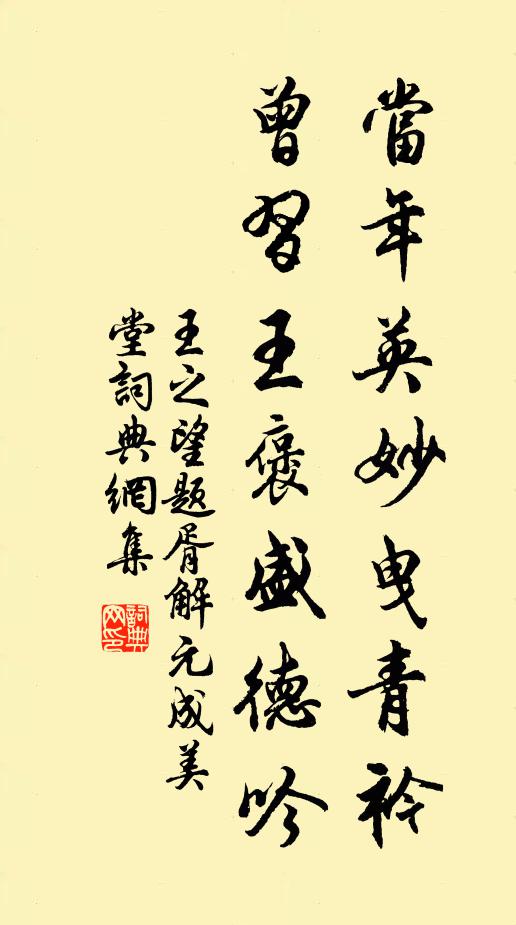 當年英妙曳青衿
曾習王褒盛德吟
王之望題胥解元成美
堂詞典網集
詞典
网印